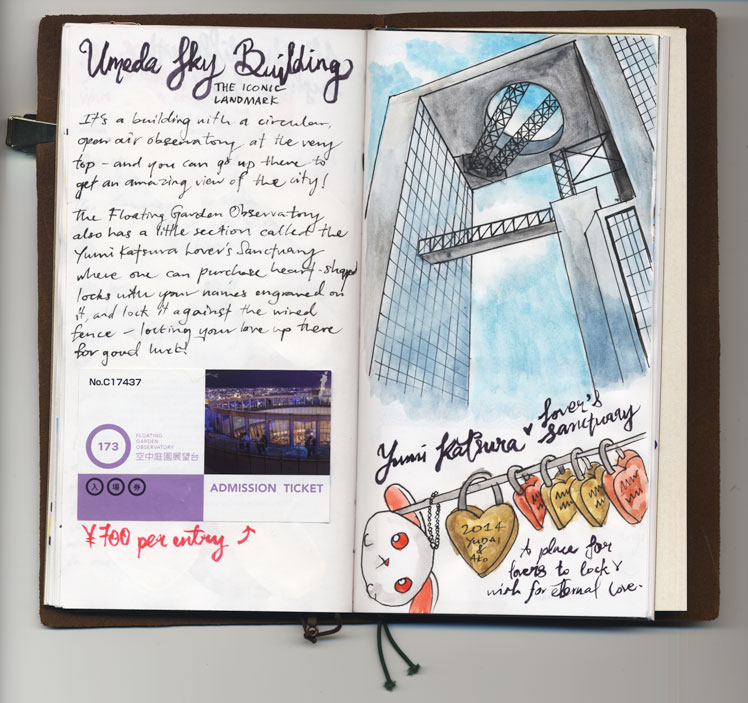 Umeda Sky Building
THE ICONIC
LANDMARK
It's a building with a circular,
open air observatory at the very
top - and you can go up there to
get an amazing view of the city!
The Floating Garden Observatory
also has a little section called the
Yumi Katsura Lover's Sanctuary
where one can purchase heart-shaped
locks with your names engraved on
it, and lock it against the wired
fence - locking your love up there
for good luck!
No.C17437
173
FLOATING
GARDEN
OBSERVATORY
空中庭園展望台
入場券
ADMISSION TICKET
¥700 per entry
Yumi Katsura ♥ Lover's
Sanctuary
2014
YUDAI
&
AKO
A place for
lovers to lock &
wish for eternal love.